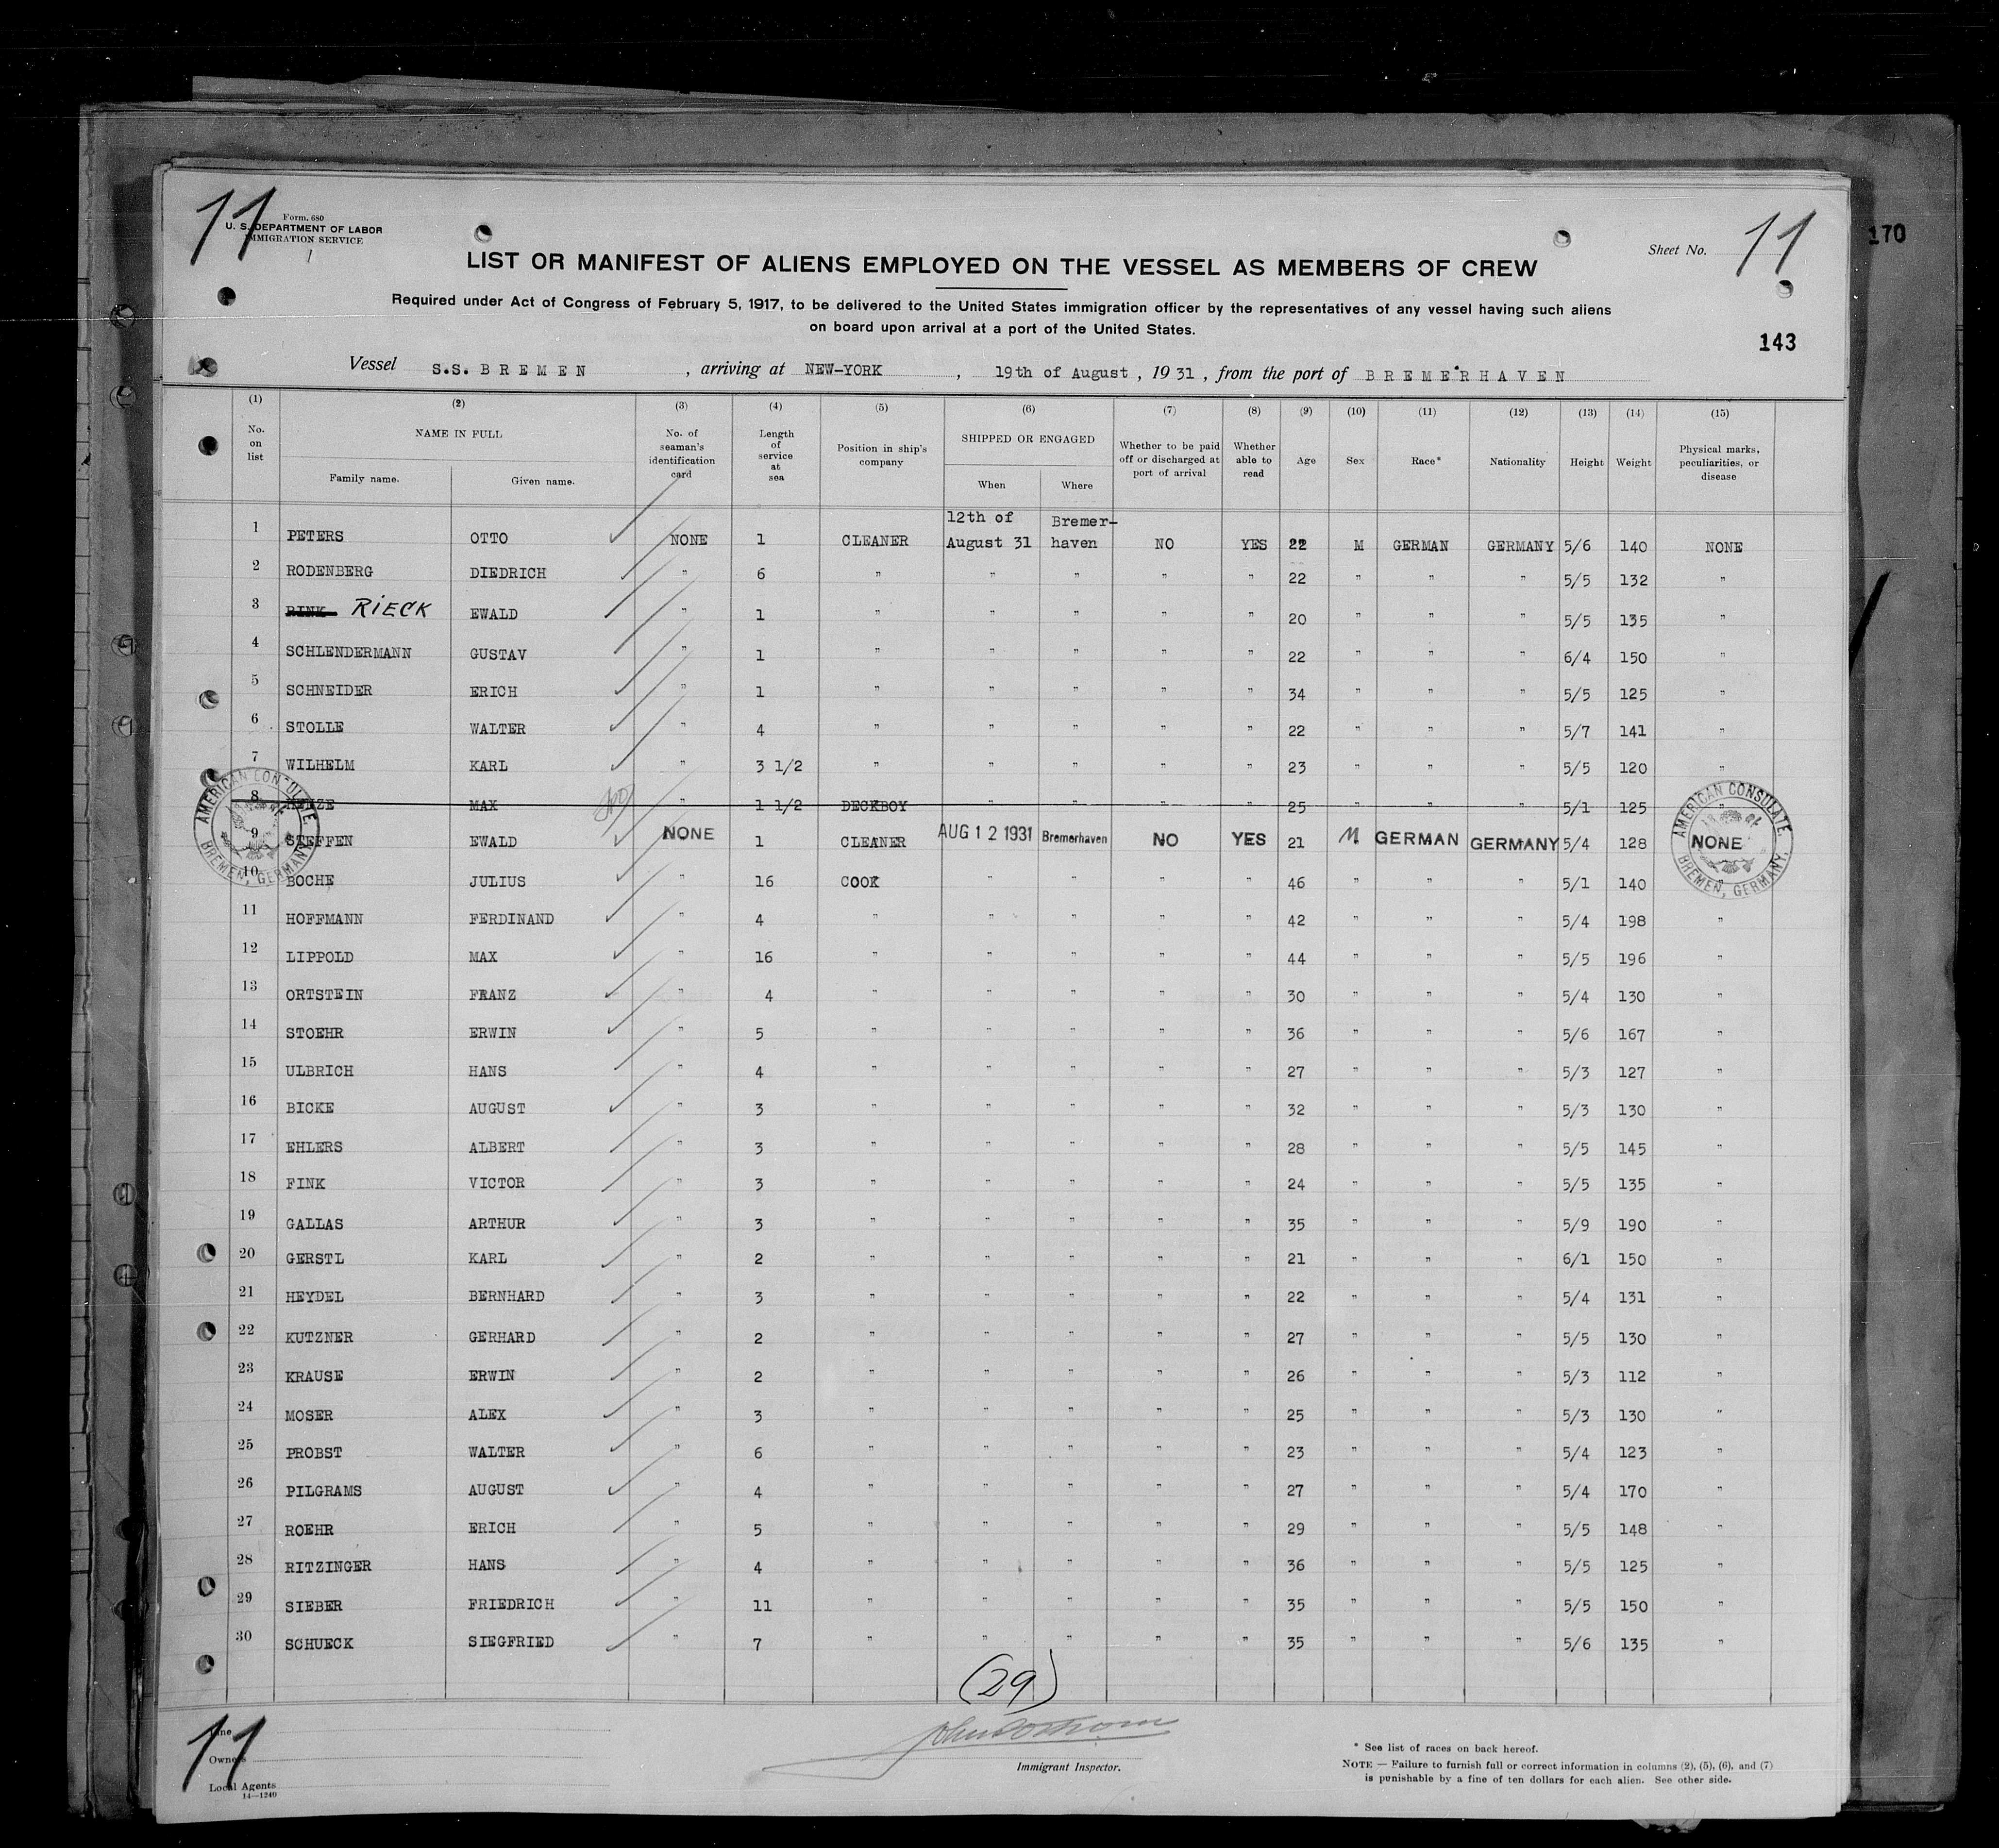 11
Form. 680
U. S. DEPARTMENT OF LABOR
IMMIGRATION SERVICE
Sheet No. 11
170
LIST OR MANIFEST OF ALIENS EMPLOYED ON THE VESSEL AS MEMBERS OF CREW
Required under Act of Congress of February 5, 1917, to be delivered to the United States immigration officer by the representatives of any vessel having such aliens
on board upon arrival at a port of the United States.
143
Vessel S.S. BREMEN , arriving at NEW-YORK , 19th of August , 1931 , from the port of BREMERHAVEN
(1) (2) (3) (4) (5) (6) (7) (8) (9) (10) (11) (12) (13) (14) (15)
No. on list NAME IN FULL Family name. Given name. No. of seaman's identification card Length of service at sea Position in ship's company SHIPPED OR ENGAGED When Where Whether to be paid off or discharged at port of arrival Whether able to read Age Sex Race* Nationality Height Weight Physical marks, peculiarities, or disease
1 PETERS OTTO NONE 1 CLEANER 12th of August 31 Bremer-haven NO YES 22 M GERMAN GERMANY 5/6 140 NONE
2 RODENBERG DIEDRICH " 6 " " " " " 22 " " " 5/5 132 "
3 RINK RIECK EWALD " 1 " " " " " 20 " " " 5/5 135 "
4 SCHLENDERMANN GUSTAV " 1 " " " " " 22 " " " 6/4 150 "
5 SCHNEIDER ERICH " 1 " " " " " 34 " " " 5/5 125 "
6 STOLLE WALTER " 4 " " " " " 22 " " " 5/7 141 "
7 WILHELM KARL " 3 1/2 " " " " " 23 " " " 5/5 120 "
8 MAX " 1 1/2 DECKBOY " " " " 25 " " " 5/1 125 "
9 STEFFEN EWALD NONE 1 CLEANER AUG 12 1931 Bremerhaven NO YES 21 M. GERMAN GERMANY 5/4 128 NONE
10 BOCHE JULIUS " 16 COOK " " " " 46 " " " 5/1 140 "
11 HOFFMANN FERDINAND " 4 " " " " " 42 " " " 5/4 198 "
12 LIPPOLD MAX " 16 " " " " " 44 " " " 5/5 196 "
13 ORTSTEIN FRANZ " 4 " " " " " 30 " " " 5/4 130 "
14 STOEHR ERWIN " 5 " " " " " 36 " " " 5/6 167 "
15 ULBRICH HANS " 4 " " " " " 27 " " " 5/3 127 "
16 BICKE AUGUST " 3 " " " " " 32 " " " 5/3 130 "
17 EHLERS ALBERT " 3 " " " " " 28 " " " 5/5 145 "
18 FINK VICTOR " 3 " " " " " 24 " " " 5/5 135 "
19 GALLAS ARTHUR " 3 " " " " " 35 " " " 5/9 190 "
20 GERSTL KARL " 2 " " " " " 21 " " " 6/1 150 "
21 HEYDEL BERNHARD " 3 " " " " " 22 " " " 5/4 131 "
22 KUTZNER GERHARD " 2 " " " " " 27 " " " 5/5 130 "
23 KRAUSE ERWIN " 2 " " " " " 26 " " " 5/3 112 "
24 MOSER ALEX " 3 " " " " " 25 " " " 5/3 130 "
25 PROBST WALTER " 6 " " " " " 23 " " " 5/4 123 "
26 PILGRAMS AUGUST " 4 " " " " " 27 " " " 5/4 170 "
27 ROEHR ERICH " 5 " " " " " 29 " " " 5/5 148 "
28 RITZINGER HANS " 4 " " " " " 36 " " " 5/5 125 "
29 SIEBER FRIEDRICH " 11 " " " " " 35 " " " 5/5 150 "
30 SCHUECK SIEGFRIED " 7 " " " " " 35 " " " 5/6 135 "
AMERICAN CONSULATE
BREMEN, GERMANY
AMERICAN CONSULATE
BREMEN, GERMANY
(29)
11
Line
Owners
Local Agents
14—1240
Immigrant Inspector.
* See list of races on back hereof.
NOTE — Failure to furnish full or correct information in columns (2), (5), (6), and (7)
is punishable by a fine of ten dollars for each alien. See other side.